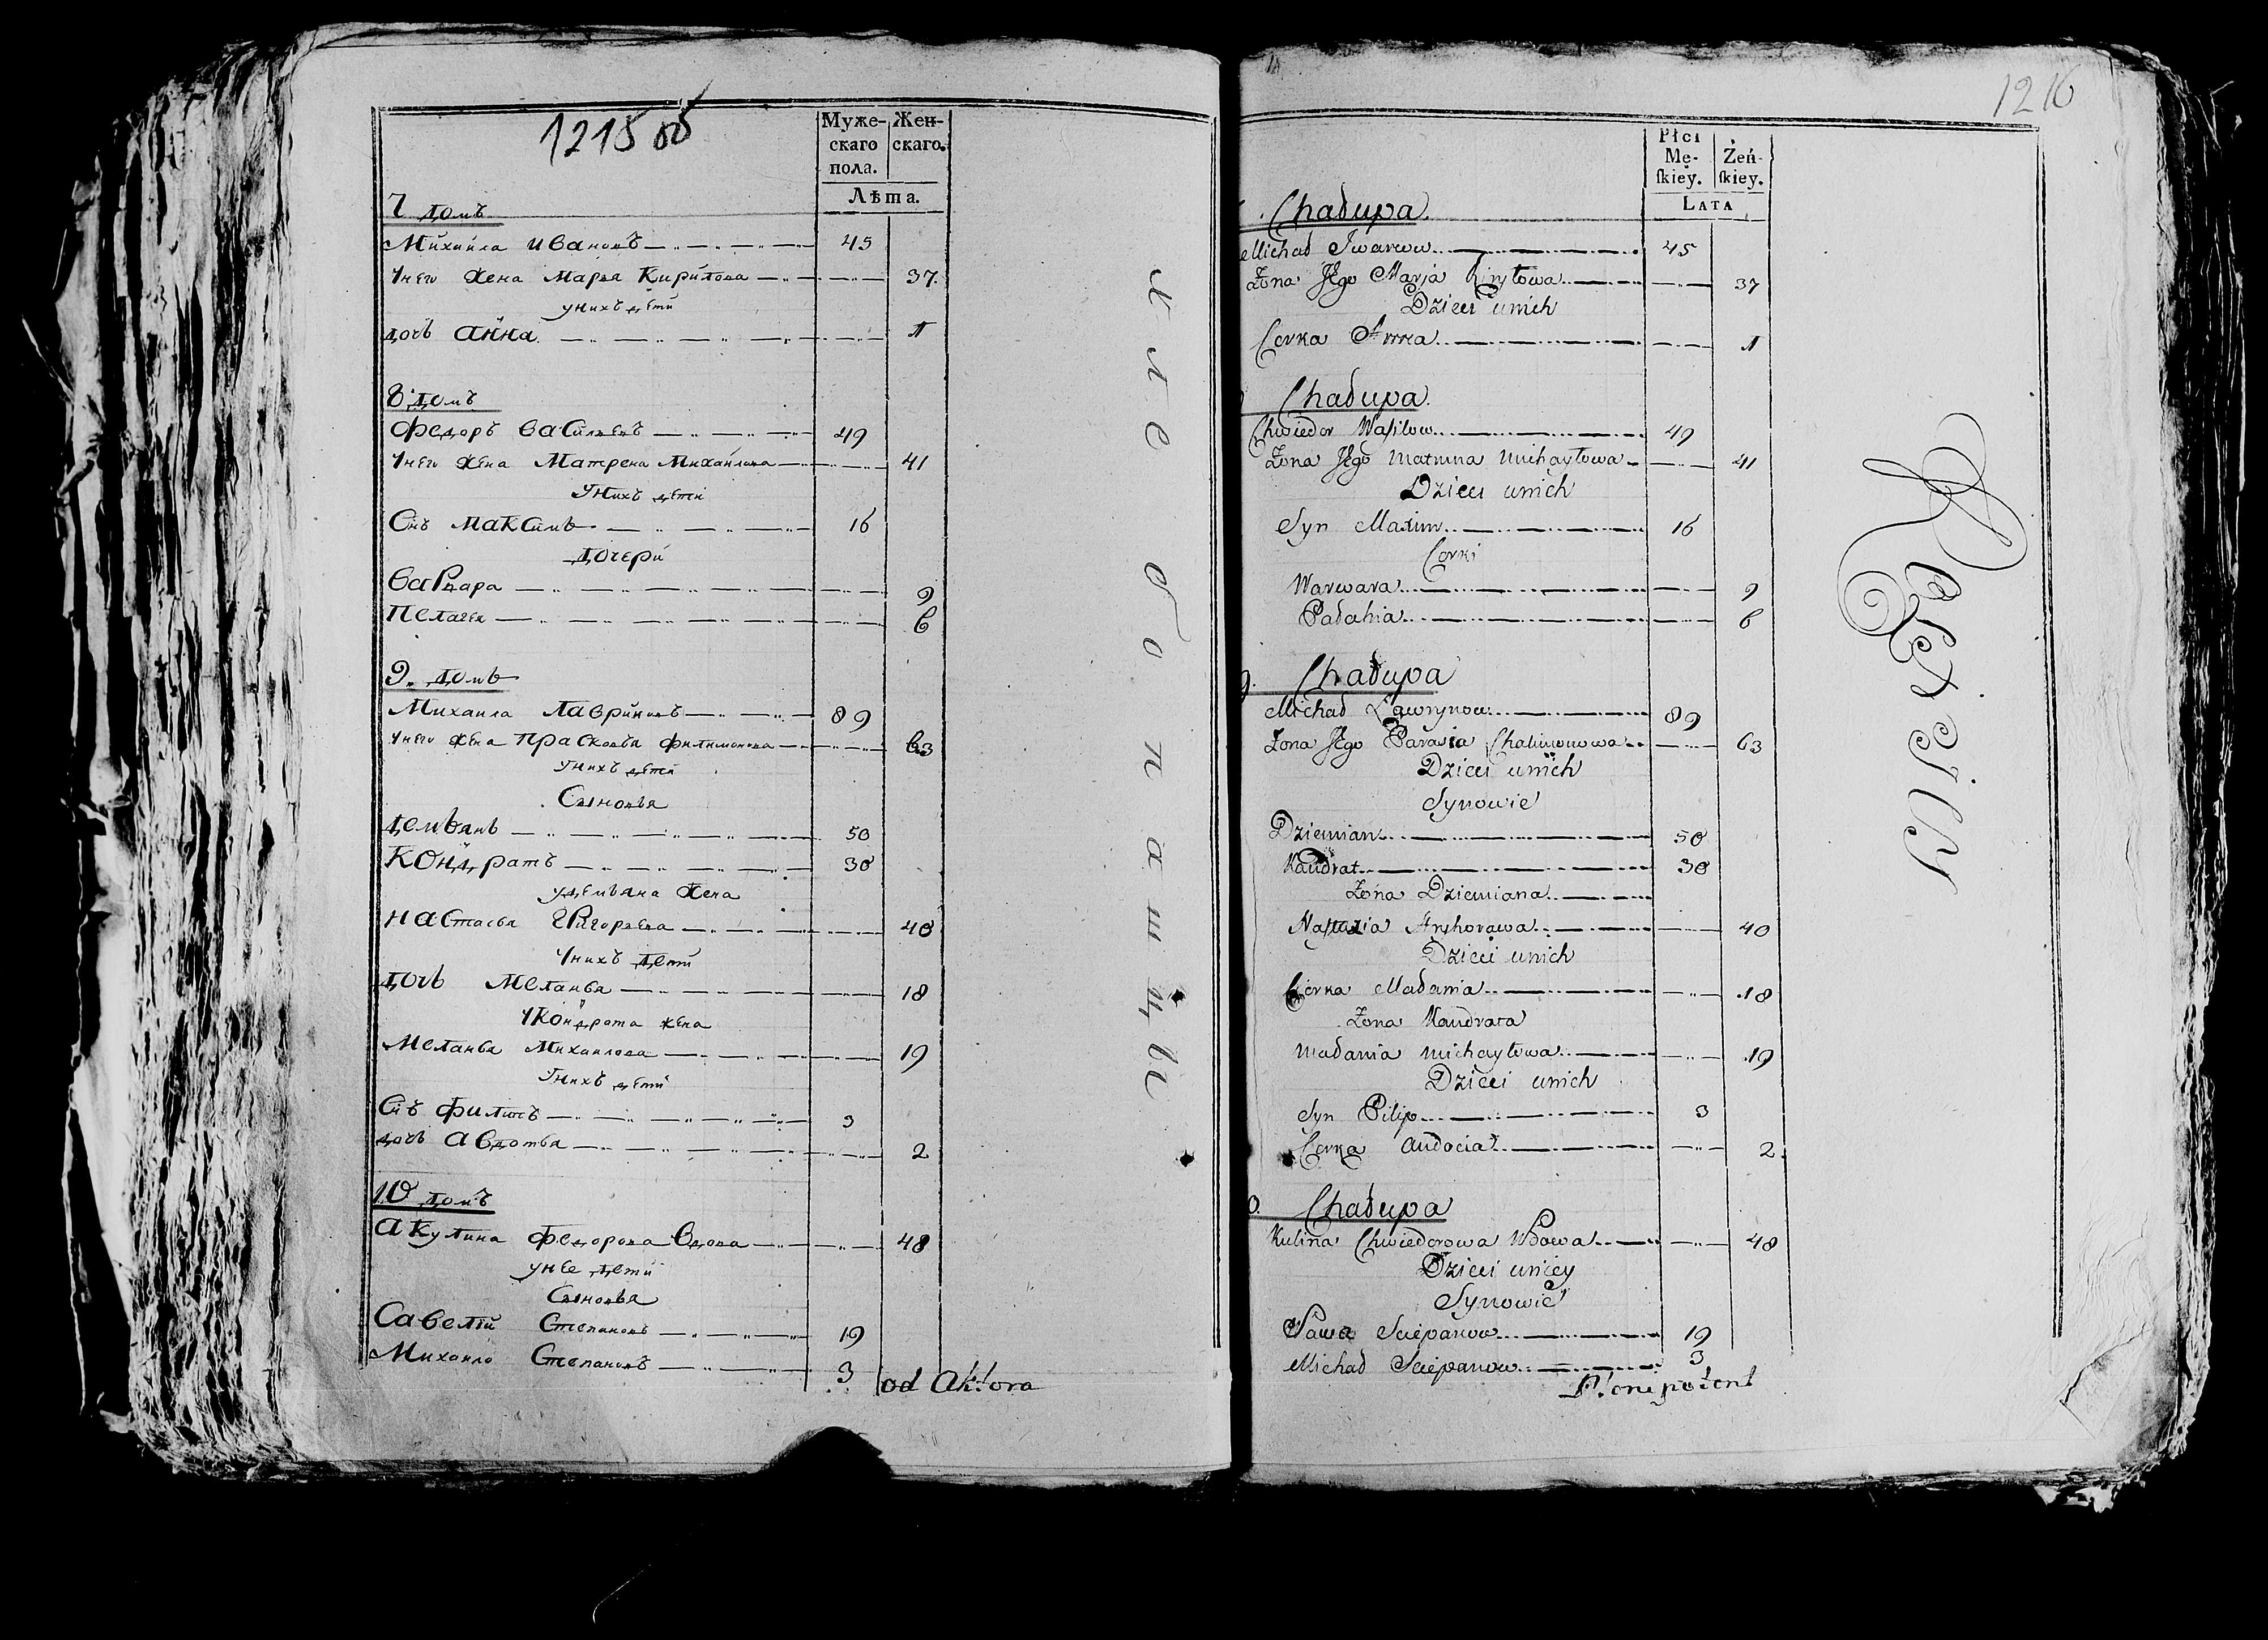 1215 об
Муже-
скаго
пола.
Жен-
скаго.
Лѣта.
7 домъ
Михайла Ивановъ 45
У него жена Марья Кирилова 37
у нихъ дети
дочь Анна 1
8 домъ
Федоръ Васильевъ 49
У него жена Матрена Михайлова 41
У нихъ дети
Снъ Максимъ 16
дочери
Варвара 9
Пелагея 6
9. домъ
Михаила Лавриновъ 89
У него жена Прасковья Филимонова 63
У нихъ дети
Сыновья
демьянъ 50
Кондратъ 30
у демьяна жена
Настасья Григорьева 40
У нихъ дети
дочь Меланья 18
У Кондрата жена
Меланья Михаилова 19
У нихъ дети
Снъ Филипъ 3
дочь Авдотья 2
10 домъ
Акулина Федорова вдова 48
у нее дети
Сыновья
Савелій Степановъ 19
Михайло Степановъ 3
od Aktora
1216
Płci
Mę-
ſkiey.
Żeń-
ſkiey.
LATA
Chałupa.
Michał Iwanow 45
Żona Jego Marja Kiryłowa 37
Dzieci u nich
Corka Anna 1
Chałupa.
Chwiedor Wasilow 49
Żona Jego Matruna Michayłowa 41
Dzieci u nich
Syn Maxim 16
Corki
Warwara 9
Pałahia 6
9. Chałupa
Michał Ławrynow 89
Żona Jego Parasia Chalimonowa 63
Dzieci u nich
Synowie
Dziemian 50
Kandrat 30
Żona Dziemiana
Nastazia Aryhorawa 40
Dzieci u nich
Corka Małania 18
Żona Kandrata
Małania Michayłowa 19
Dzieci u nich
Syn Pilip 3
Corka Audocia 2
0. Chałupa
Kulina Chwiedorowa Wdowa 48
Dzieci u niey
Synowie
Sawa Sciepanow 19
Michał Sciepanow 3